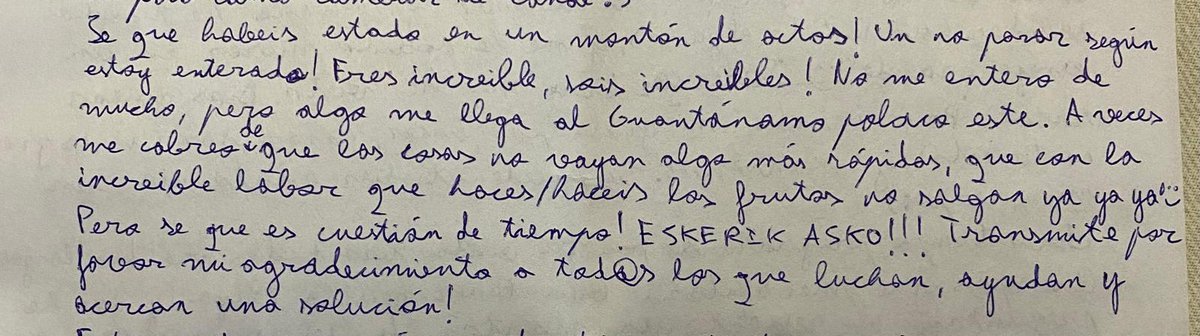 pero como cambiar de canal?
Se que habeis estado en un montón de actos! Un no parar según
estoy enterado! Eres increible, sois increibles! No me entero de
mucho, pero algo me llega al Guantánamo polaco este. A veces
me cabreo de que las cosas no vayan algo más rápidas, que con la
increible labor que haces/haceis los frutos no salgan ya ya ya
Pero se que es cuestión de tiempo! ESKERIK ASKO!!! Transmite por
favor mi agradecimiento a tod@s los que luchan, ayudan y
acercan una solución!